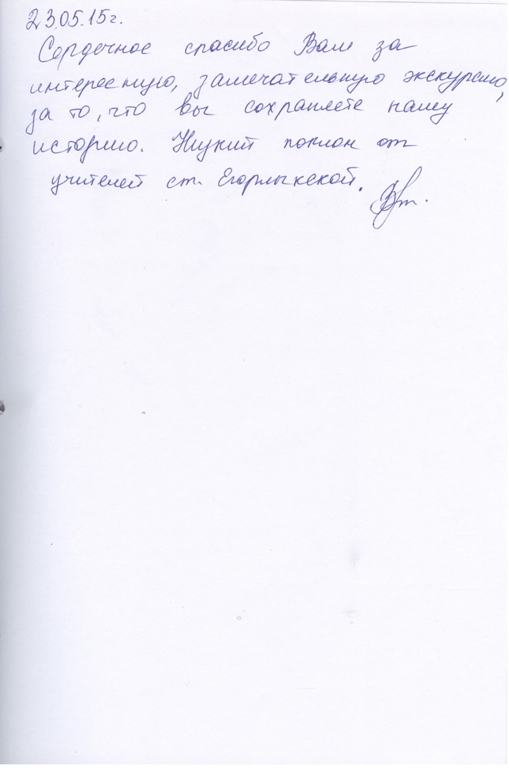 23.05.15г.
Сердечное спасибо Вам за
интересную, замечательную экскурсию,
за то, что вы сохраняете нашу
историю. Низкий поклон от
учителей ст. Егорлыкской.